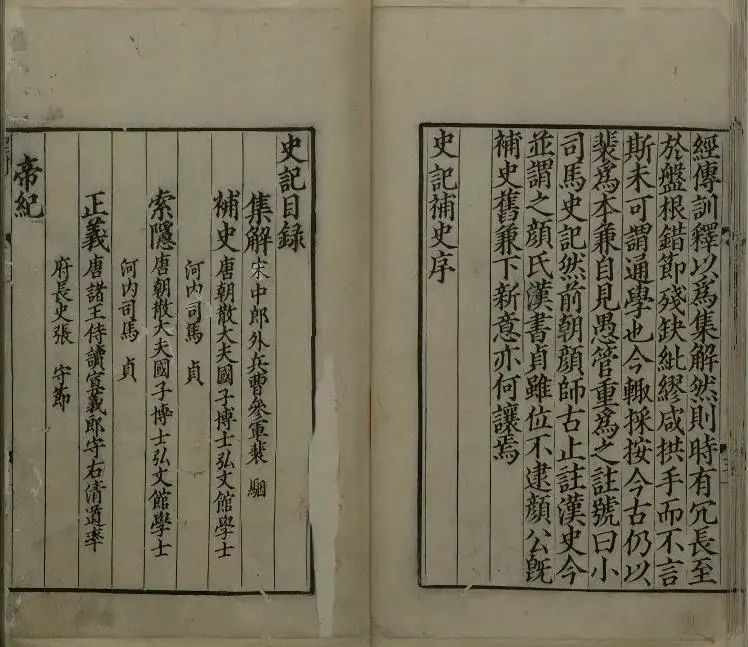 經傳訓釋以爲集解然則時有冗長至
於盤根錯節殘缺紕繆咸拱手而不言
斯未可謂通學也今輙採按今古仍以
裴爲本兼自見愚管重爲之註號曰小
司馬史記然前朝顔師古止註漢史今
並謂之顔氏漢書貞雖位不逮顔公旣
補史舊兼下新意亦何讓焉
史記補史序
史記目録
集解宋中郎外兵曹叅軍裴 駰
補史唐朝散大夫國子博士弘文館學士
河内司馬 貞
索隱唐朝散大夫國子博士弘文館學士
河内司馬 貞
正義唐諸王侍讀宣義郎守右清道率
府長史張 守節
帝紀